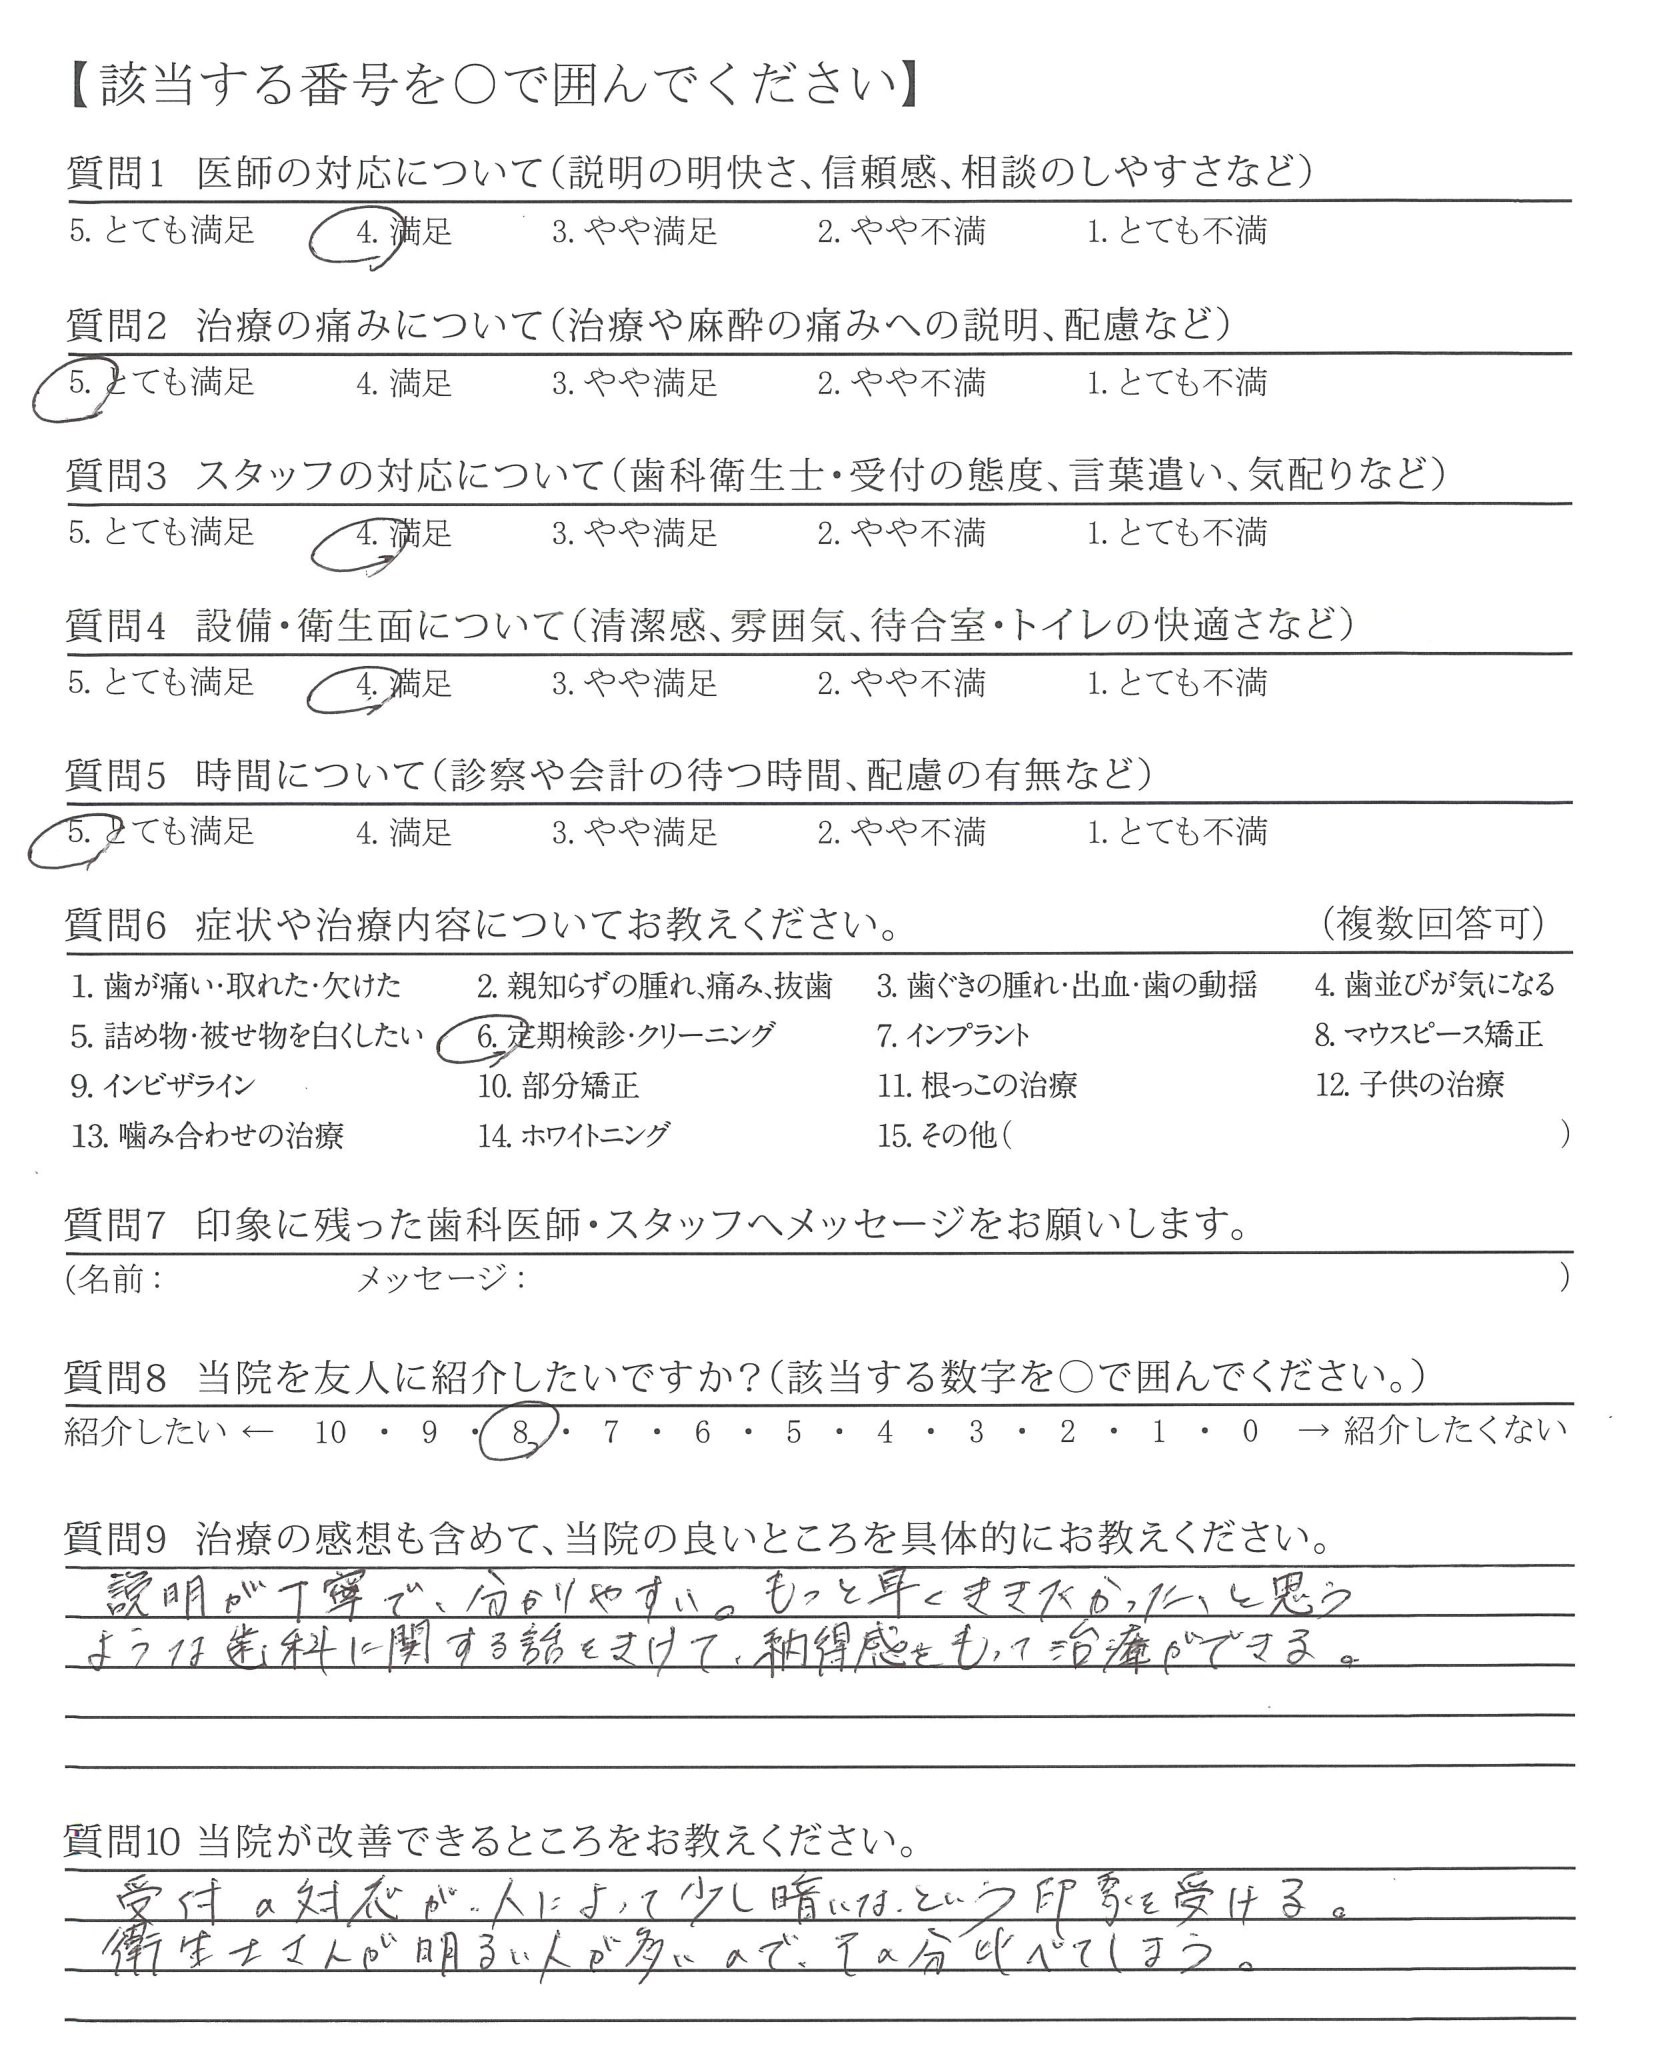 【該当する番号を○で囲んでください】
質問1 医師の対応について(説明の明快さ、信頼感、相談のしやすさなど)
5. とても満足 4. 満足 3. やや満足 2. やや不満 1. とても不満
質問2 治療の痛みについて(治療や麻酔の痛みへの説明、配慮など)
5. とても満足 4. 満足 3. やや満足 2. やや不満 1. とても不満
質問3 スタッフの対応について(歯科衛生士・受付の態度、言葉遣い、気配りなど)
5. とても満足 4. 満足 3. やや満足 2. やや不満 1. とても不満
質問4 設備・衛生面について(清潔感、雰囲気、待合室・トイレの快適さなど)
5. とても満足 4. 満足 3. やや満足 2. やや不満 1. とても不満
質問5 時間について(診察や会計の待つ時間、配慮の有無など)
5. とても満足 4. 満足 3. やや満足 2. やや不満 1. とても不満
質問6 症状や治療内容についてお教えください。 (複数回答可)
1. 歯が痛い・取れた・欠けた 2. 親知らずの腫れ、痛み、抜歯 3. 歯ぐきの腫れ・出血・歯の動揺 4. 歯並びが気になる
5. 詰め物・被せ物を白くしたい 6. 定期検診・クリーニング 7. インプラント 8. マウスピース矯正
9. インビザライン 10. 部分矯正 11. 根っこの治療 12. 子供の治療
13. 噛み合わせの治療 14. ホワイトニング 15. その他( )
質問7 印象に残った歯科医師・スタッフへメッセージをお願いします。
(名前: メッセージ: )
質問8 当院を友人に紹介したいですか?(該当する数字を○で囲んでください。)
紹介したい ← 10 ・ 9 ・ 8 ・ 7 ・ 6 ・ 5 ・ 4 ・ 3 ・ 2 ・ 1 ・ 0 → 紹介したくない
質問9 治療の感想も含めて、当院の良いところを具体的にお教えください。
説明が丁寧で、分かりやすい。もっと早くききたかった、と思う
ような歯科に関する話をきけて、納得感をもって治療ができる。
質問10 当院が改善できるところをお教えください。
受付の対応が、人によって少し暗いな、という印象を受ける。
衛生士さんが明るい人が多いので、その分比べてしまう。